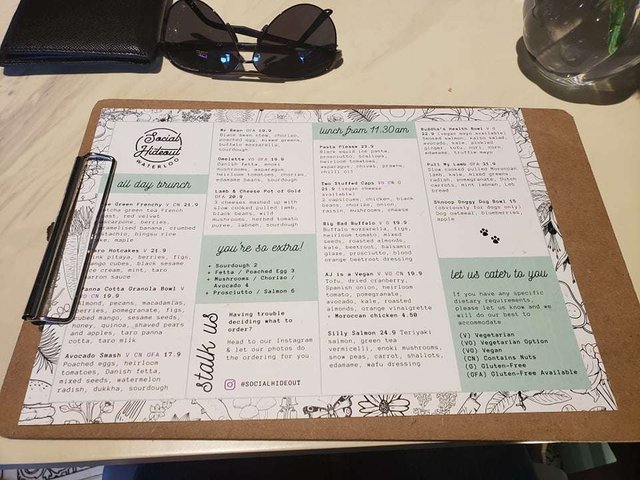 Social
Hideout
WATERLOO
all day brunch
Green Frenchy V CN 21.9
green tea French
red velvet
berries,
caramelised banana, crumbed
pistachio, bingsu rice
maple
Hotcakes V 21.9
pitaya, berries, figs,
mango cubes, black sesame
ice cream, mint, taro
sauce
Panna Cotta Granola Bowl V
CN 19.9
Almond, pecans, macadamias,
berries, pomegranate, figs,
dried mango, sesame seeds,
honey, quinoa, shaved pears
and apples, taro panna
cotta, taro milk
Avocado Smash V CN GFA 17.9
Poached eggs, heirloom
tomatoes, Danish fetta,
mixed seeds, watermelon
radish, dukkha, sourdough
Mr Bean GFA 19.9
Black bean stew, chorizo,
poached egg, mixed greens,
buffalo mozzarella,
sourdough
Omelette VO GFA 19.9
Danish fetta, enoki
mushrooms, asparagus,
heirloom tomatoes, chorizo,
edamame beans, sourdough
Lamb & Cheese Pot of Gold
GFA 20.9
3 cheeses, mashed up with
slow cooked pulled lamb,
black beans, wild
mushrooms, herbed tomato
puree, labneh, sourdough
you're so extra!
+ Sourdough 2
+ Fetta / Poached Egg 3
+ Mushrooms / Chorizo /
Avocado 4
+ Prosciutto / Salmon 6
stalk us
Having trouble
deciding what to
order?
Head to our Instagram
& let our photos do
the ordering for you.
@SOCIALHIDEOUT
lunch from 11.30am
Pasta Please 23.9
Black squid ink pasta,
prosciutto, scallops,
heirloom tomatoes,
asparagus, chives, prawn,
chilli oil
Two Stuffed Caps VO CN G
21.9 (vegan cheese
available)
2 capsicums, chicken, black
beans, chorizo, onion,
raisin, mushrooms, cheese
Big Bad Buffalo V G 19.9
Buffalo mozzarella, figs,
heirloom tomato, mixed
seeds, roasted almonds,
kale, beetroot, balsamic
glaze, prosciutto, blood
orange beetroot dressing
AJ is a Vegan V VO CN 19.9
Tofu, dried cranberry,
Spanish onion, heirloom
tomato, pomegranate,
avocado, kale, roasted
almonds, orange vinaigrette
+ Moroccan chicken 4.50
Silly Salmon 24.9 Teriyaki
salmon, green tea
vermicelli, enoki mushrooms
snow peas, carrot, shallots,
edamame, wafu dressing
Buddha's Health Bowl V G
22.9 (vegan mayo available)
Smoked salmon, kaiso salad,
avocado, kale, pickled
ginger, tofu, nori, corn,
edamame, truffle mayo
Pull My Lamb GFA 21.9
Slow cooked pulled Moroccan
lamb, kale, mixed greens,
radish, pomegranate, Dutch
carrots, mint labnah, Leb
bread
Shnoop Doggy Dog Bowl 15
(obviously for dogs only)
Dog oatmeal, blueberries,
apple
let us cater to you
If you have any specific
dietary requirements,
please let us know and we
will do our best to
accommodate
(V) Vegetarian
(VO) Vegetarian Option
(VG) Vegan
(CN) Contains Nuts
(G) Gluten-Free
(GFA) Gluten-Free Available